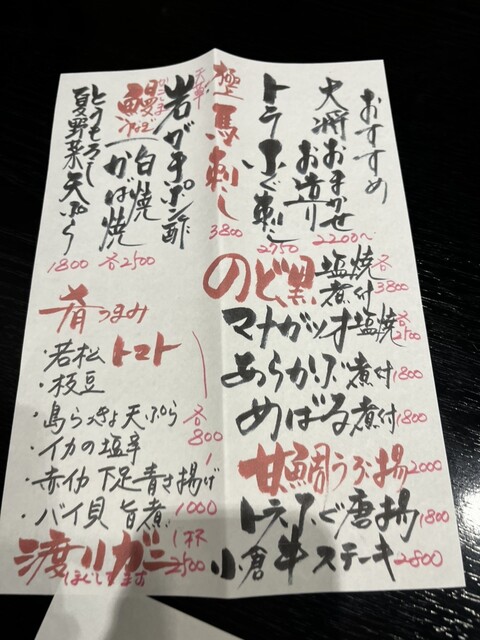 おすすめ
大将おまかせ
お造り
2200〜
トラふぐ刺し
2750
極 馬刺し
3800
天草
岩ガキポン酢
鰻
白焼
かば焼
各2500
とうもろこし
夏野菜天ぷら
1800
のど黒 塩焼 煮付 各3800
マナガツオ 塩焼 各2500
あらかぶ煮付 1800
めばる煮付 1800
甘鯛うろこ揚 2000
トラふぐ唐揚 1800
小倉牛ステーキ 2800
肴 つまみ
・若松トマト
・枝豆
・島らっきょ天ぷら
・イカの塩辛
各800
・赤イカ下足青さ揚げ
・バイ貝旨煮 1000
渡りガニ 1杯 2500
ほぐします